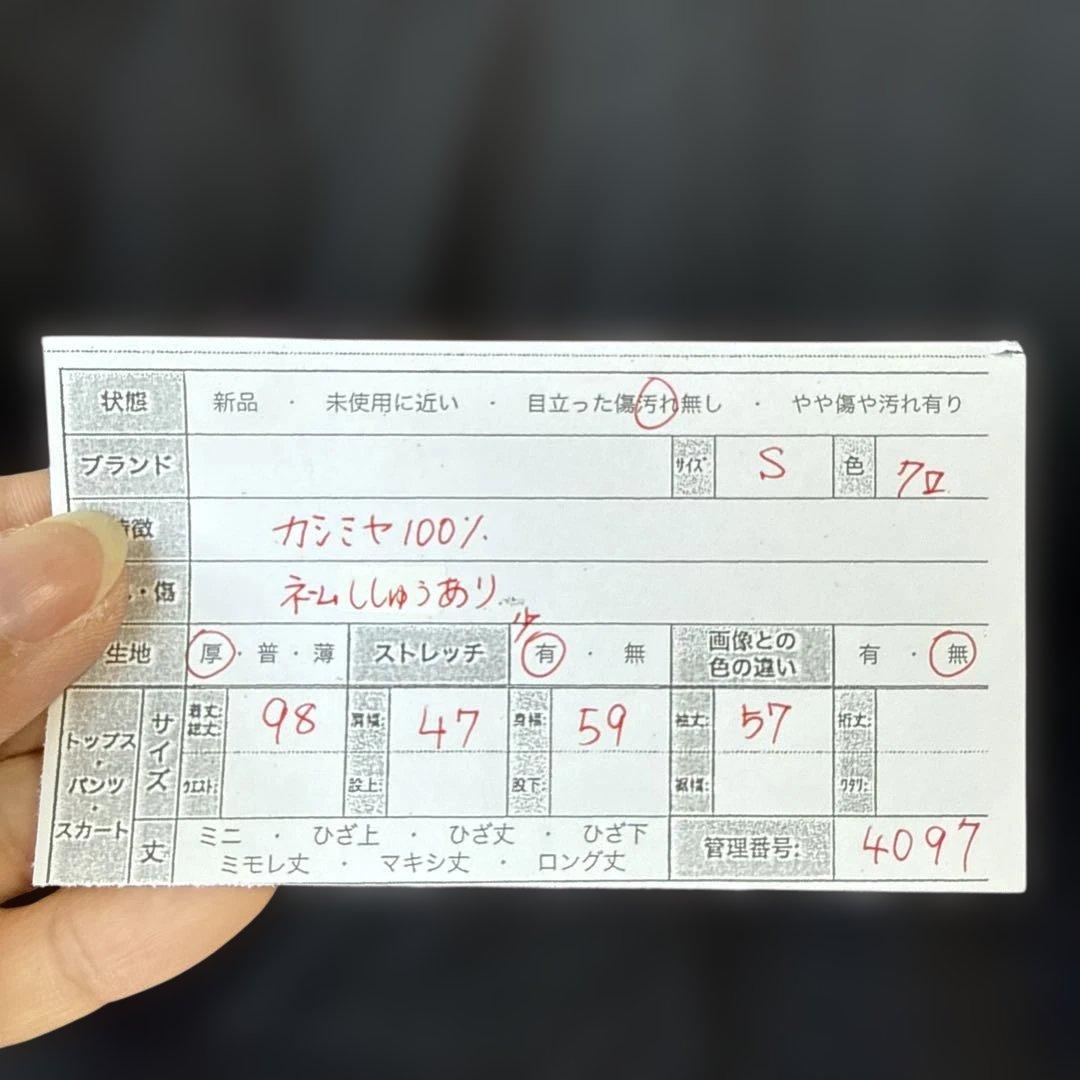 状態 新品 ・ 未使用に近い ・ 目立った傷汚れ無し ・ やや傷や汚れ有り
ブランド サイズ S 色 クロ
徴 カシミヤ100%
・傷 ネームししゅうあり
生地 厚・普・薄 ストレッチ 少 有 ・ 無 画像との色の違い 有 ・ 無
トップス・パンツ・スカート サイズ 着丈総丈: 98 肩幅: 47 身幅: 59 袖丈: 57 裄丈:
ウエスト: 股上: 股下: 裾幅: ワタリ:
丈 ミニ ・ ひざ上 ・ ひざ丈 ・ ひざ下
ミモレ丈 ・ マキシ丈 ・ ロング丈
管理番号: 4097